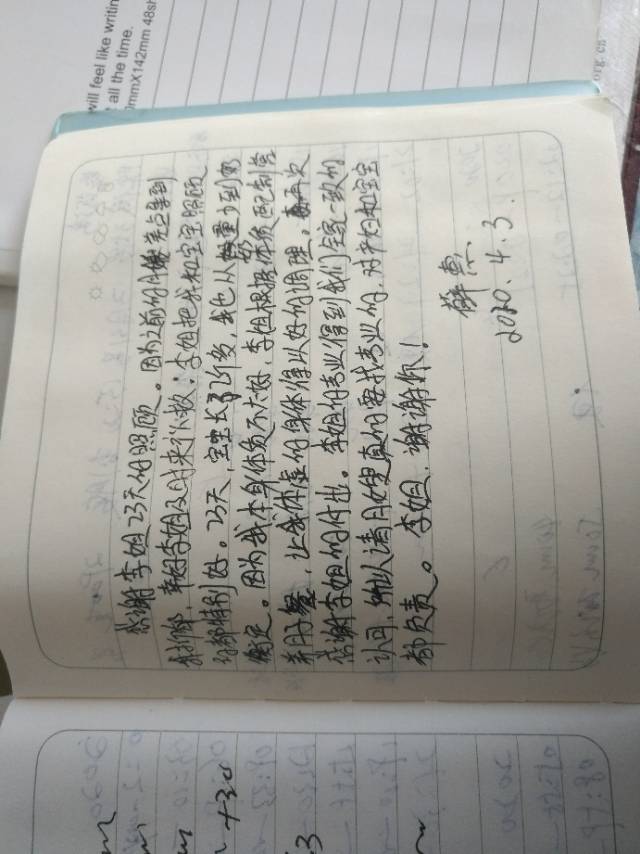 will feel like writin
all the time.
mmX142mm 48sh
org.cn
感谢李姐23天的照顾。因为之前的月嫂差点拿到
幸好李姐及时来补救；李姐把我和宝宝照顾
的都特别好。23天，宝宝长了2斤多，我也从
因为我本身体质不太好，李姐根据体质配制营
养月子餐，让我体虚的身体得以好的调理。再次
感谢李姐的付出。李姐的专业得到我们全家一致的
认可，所以请月嫂真的要找专业的，对产妇和宝宝
都负责。李姐，谢谢你！
2020.4.3.
+30
3